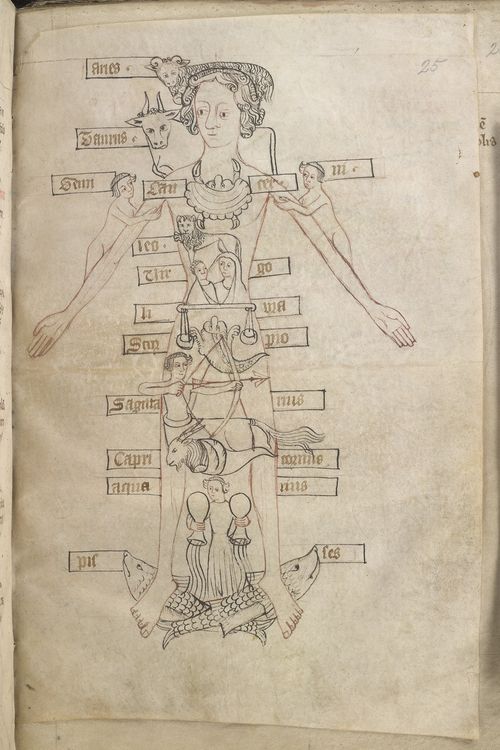 25
aries
Taurus
Gemi ni
Can cer
leo
Vir go
li bra
Scor pio
Sagita rius
Capri cornus
aqua rius
pis ses